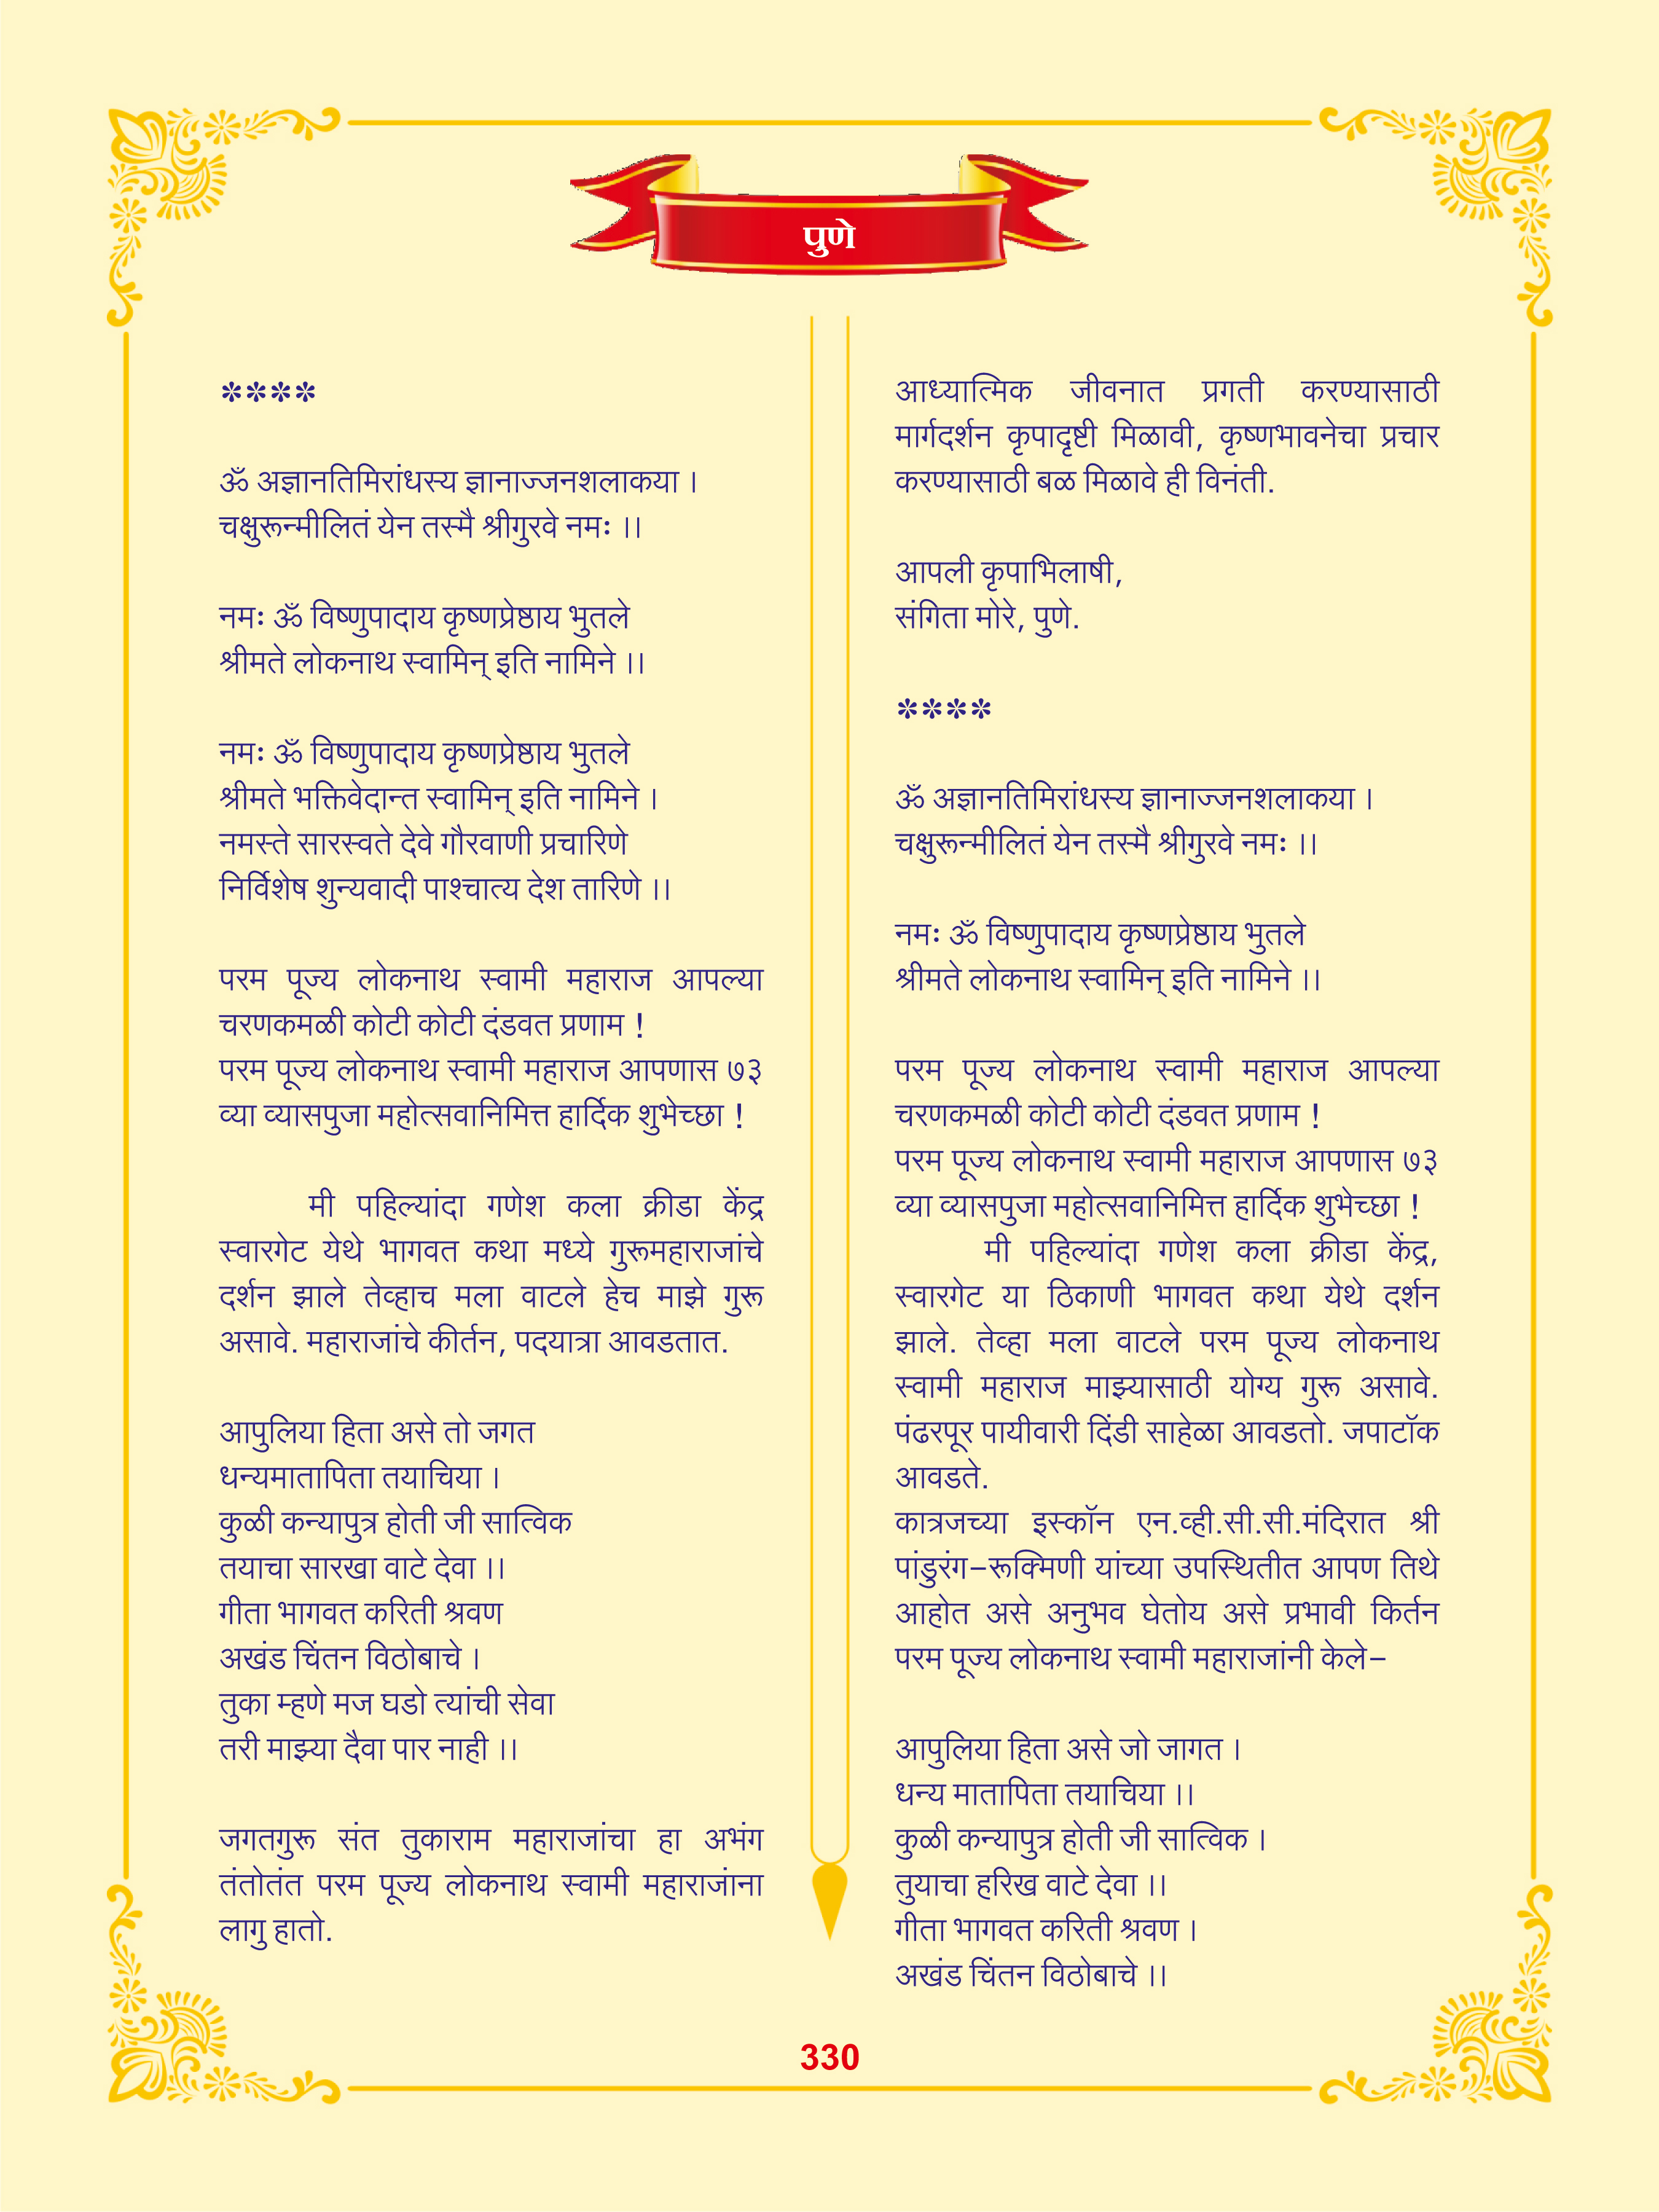 पुणे
****
ॐ अज्ञानतिमिरांधस्य ज्ञानाज्जनशलाकया ।
चक्षुरून्मीलितं येन तस्मै श्रीगुरवे नमः ।।
नमः ॐ विष्णुपादाय कृष्णप्रेष्ठाय भुतले
श्रीमते लोकनाथ स्वामिन् इति नामिने ।।
नमः ॐ विष्णुपादाय कृष्णप्रेष्ठाय भुतले
श्रीमते भक्तिवेदान्त स्वामिन् इति नामिने ।
नमस्ते सारस्वते देवे गौरवाणी प्रचारिणे
निर्विशेष शुन्यवादी पाश्चात्य देश तारिणे ।।
परम पूज्य लोकनाथ स्वामी महाराज आपल्या
चरणकमळी कोटी कोटी दंडवत प्रणाम !
परम पूज्य लोकनाथ स्वामी महाराज आपणास ७३
व्या व्यासपुजा महोत्सवानिमित्त हार्दिक शुभेच्छा !
मी पहिल्यांदा गणेश कला क्रीडा केंद्र
स्वारगेट येथे भागवत कथा मध्ये गुरूमहाराजांचे
दर्शन झाले तेव्हाच मला वाटले हेच माझे गुरू
असावे. महाराजांचे कीर्तन, पदयात्रा आवडतात.
आपुलिया हिता असे तो जगत
धन्यमातापिता तयाचिया ।
कुळी कन्यापुत्र होती जी सात्विक
तयाचा सारखा वाटे देवा ।।
गीता भागवत करिती श्रवण
अखंड चिंतन विठोबाचे ।
तुका म्हणे मज घडो त्यांची सेवा
तरी माझ्या दैवा पार नाही ।।
जगतगुरू संत तुकाराम महाराजांचा हा अभंग
तंतोतंत परम पूज्य लोकनाथ स्वामी महाराजांना
लागु हातो.
आध्यात्मिक जीवनात प्रगती करण्यासाठी
मार्गदर्शन कृपादृष्टी मिळावी, कृष्णभावनेचा प्रचार
करण्यासाठी बळ मिळावे ही विनंती.
आपली कृपाभिलाषी,
संगिता मोरे, पुणे.
****
ॐ अज्ञानतिमिरांधस्य ज्ञानाज्जनशलाकया ।
चक्षुरून्मीलितं येन तस्मै श्रीगुरवे नमः ।।
नमः ॐ विष्णुपादाय कृष्णप्रेष्ठाय भुतले
श्रीमते लोकनाथ स्वामिन् इति नामिने ।।
परम पूज्य लोकनाथ स्वामी महाराज आपल्या
चरणकमळी कोटी कोटी दंडवत प्रणाम !
परम पूज्य लोकनाथ स्वामी महाराज आपणास ७३
व्या व्यासपुजा महोत्सवानिमित्त हार्दिक शुभेच्छा !
मी पहिल्यांदा गणेश कला क्रीडा केंद्र,
स्वारगेट या ठिकाणी भागवत कथा येथे दर्शन
झाले. तेव्हा मला वाटले परम पूज्य लोकनाथ
स्वामी महाराज माझ्यासाठी योग्य गुरू असावे.
पंढरपूर पायीवारी दिंडी साहेळा आवडतो. जपाटॉक
आवडते.
कात्रजच्या इस्कॉन एन.व्ही.सी.सी.मंदिरात श्री
पांडुरंग-रूक्मिणी यांच्या उपस्थितीत आपण तिथे
आहोत असे अनुभव घेतोय असे प्रभावी किर्तन
परम पूज्य लोकनाथ स्वामी महाराजांनी केले-
आपुलिया हिता असे जो जागत ।
धन्य मातापिता तयाचिया ।।
कुळी कन्यापुत्र होती जी सात्विक ।
तुयाचा हरिख वाटे देवा ।।
गीता भागवत करिती श्रवण ।
अखंड चिंतन विठोबाचे ।।
330